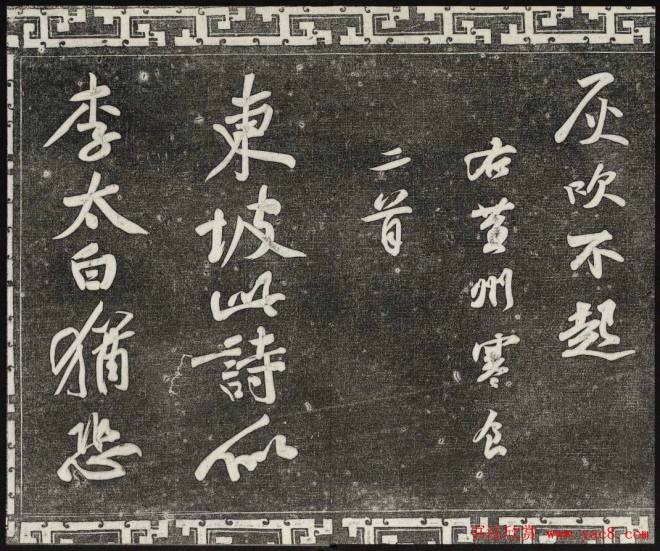 灰吹不起
右黃州寒食
二首
東坡此詩似
李太白猶恐
书法欣赏 www.yac8.com